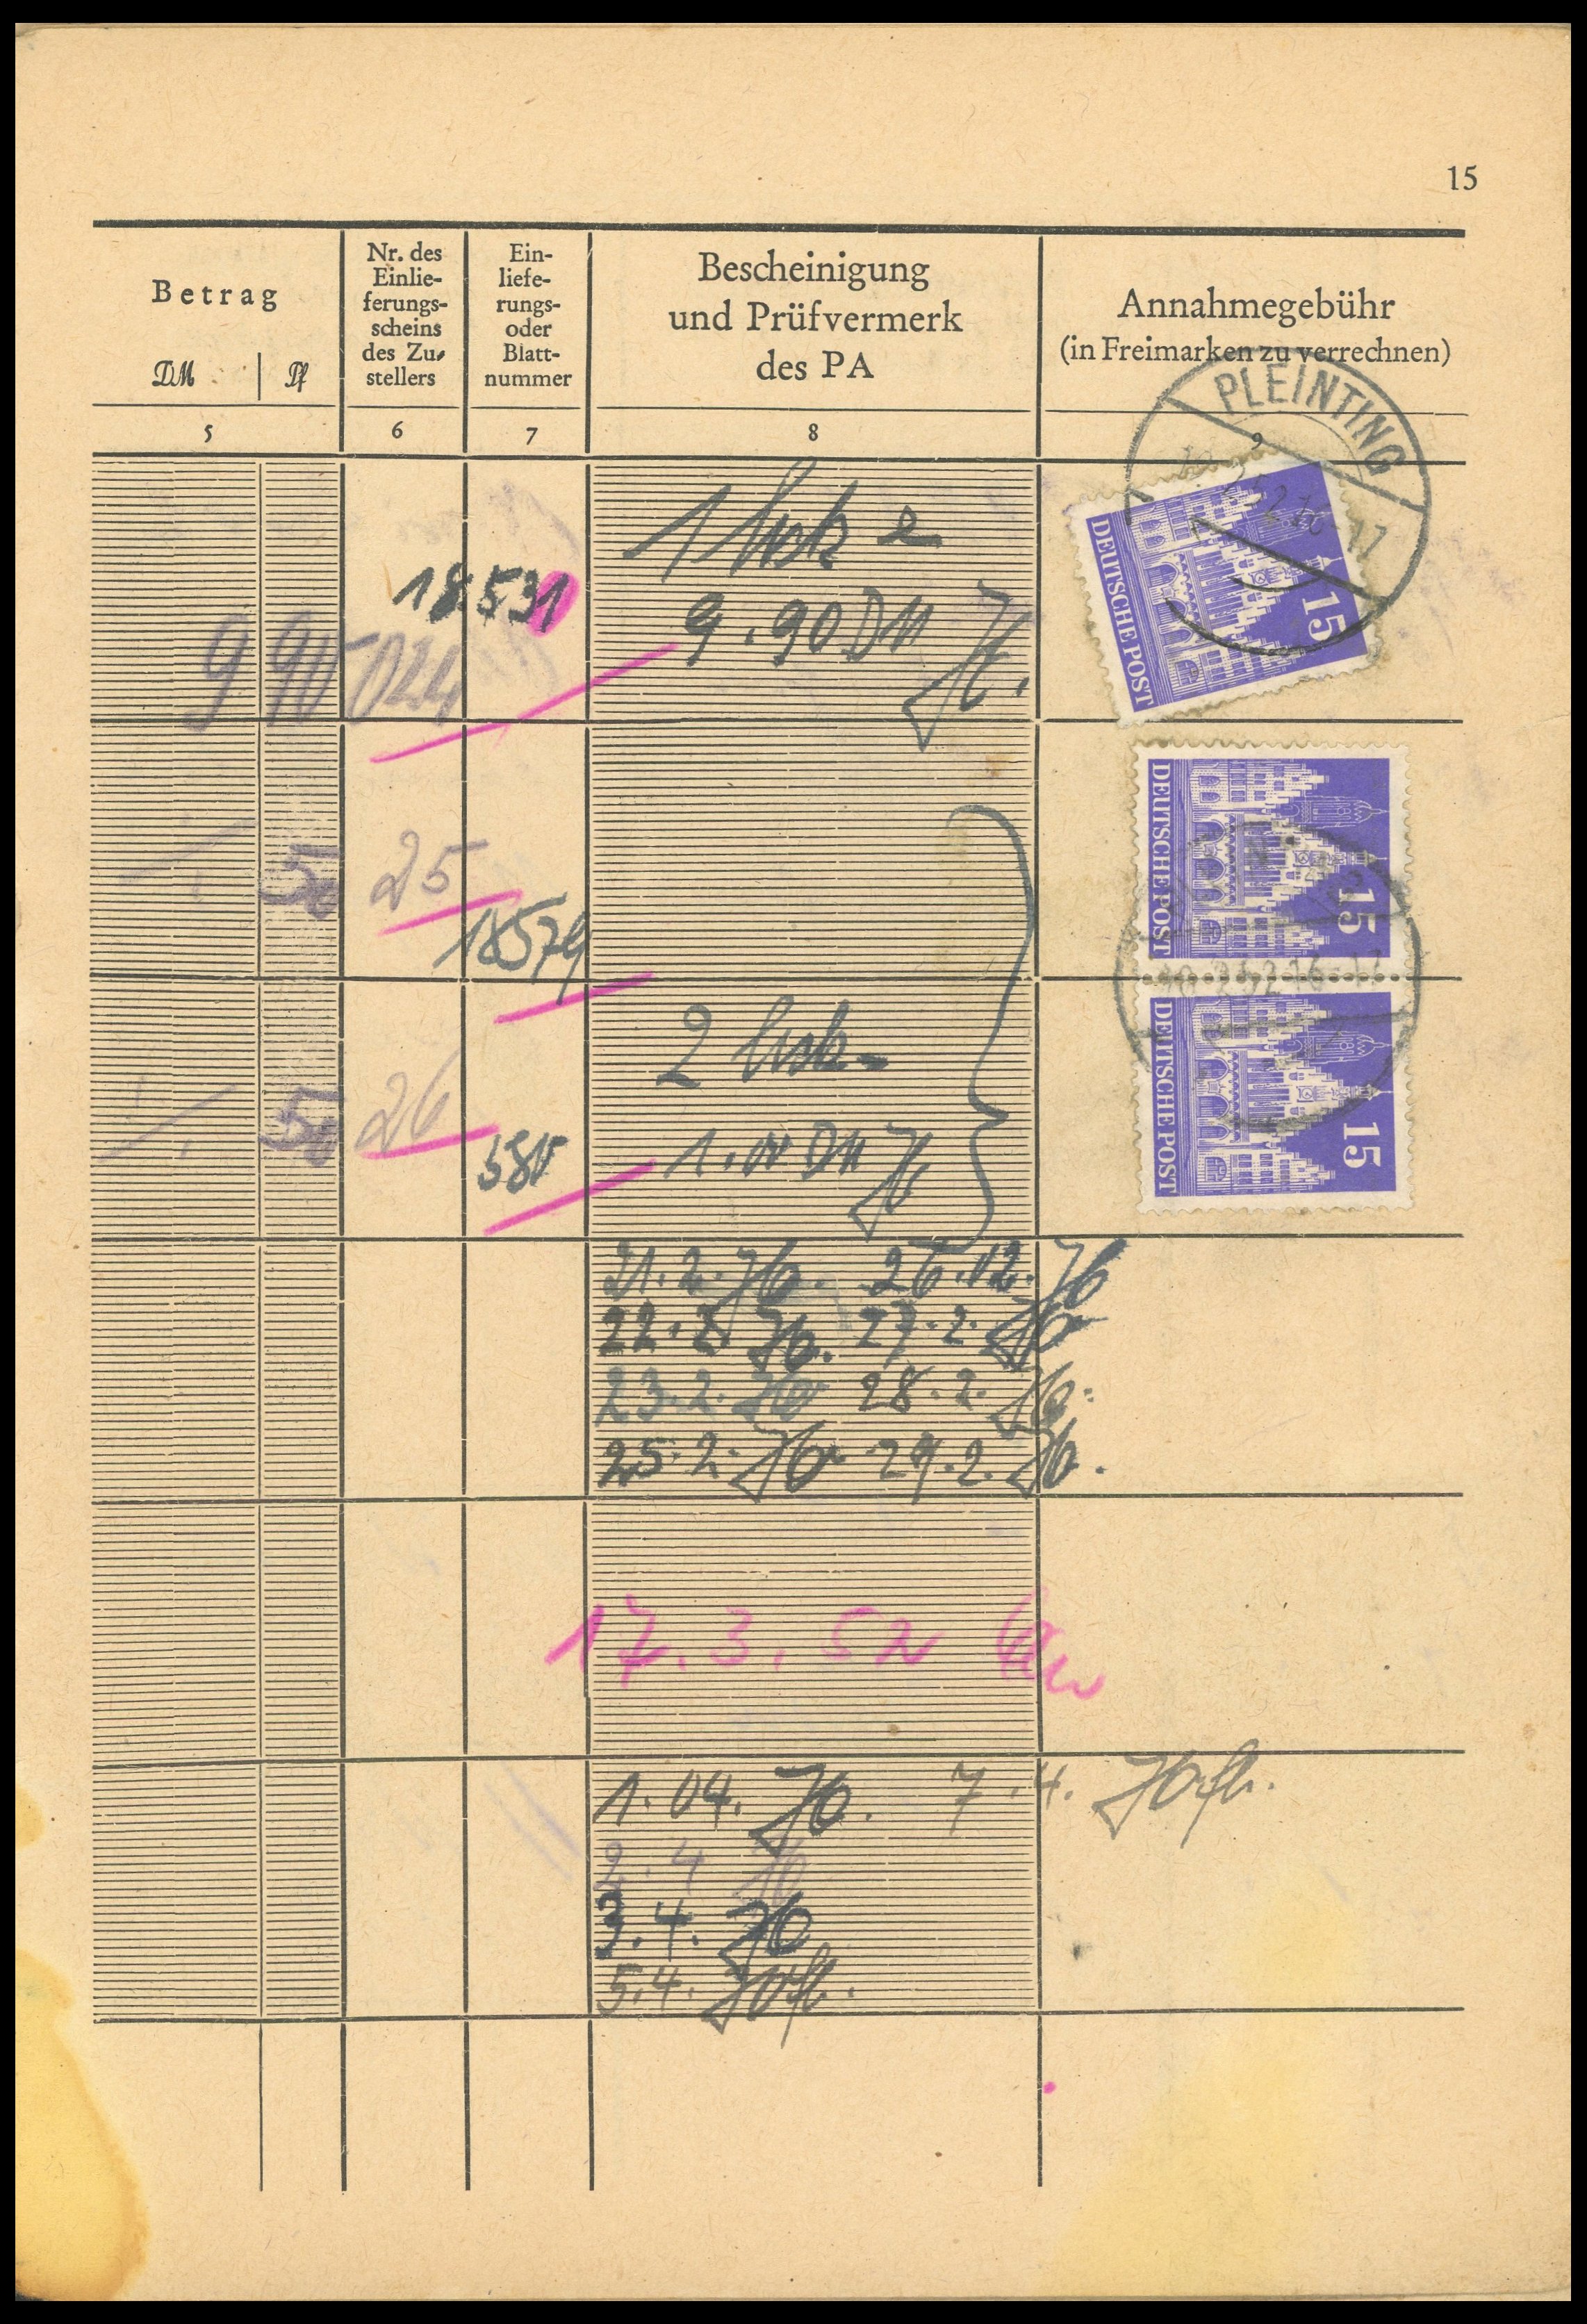 15
Betrag
DM Pf
Nr. des
Einlie-
ferungs-
scheins
des Zu-
stellers
Ein-
liefe-
rungs-
oder
Blatt-
nummer
Bescheinigung
und Prüfvermerk
des PA
Annahmegebühr
(in Freimarken zu verrechnen)
5 6 7 8
PLEINTING
18531
1
9.90 DM
9 90 024
DEUTSCHE POST
15
50 25
18579
DEUTSCHE POST
15
2
50 26
580
1. DM
DEUTSCHE POST
15
21.2. 26.12.
22.2. 27.2.
23.2. 28.2.
25.2. 29.2.
17.3.52
1.04. 7.4.
2.4
3.4.
5.4.